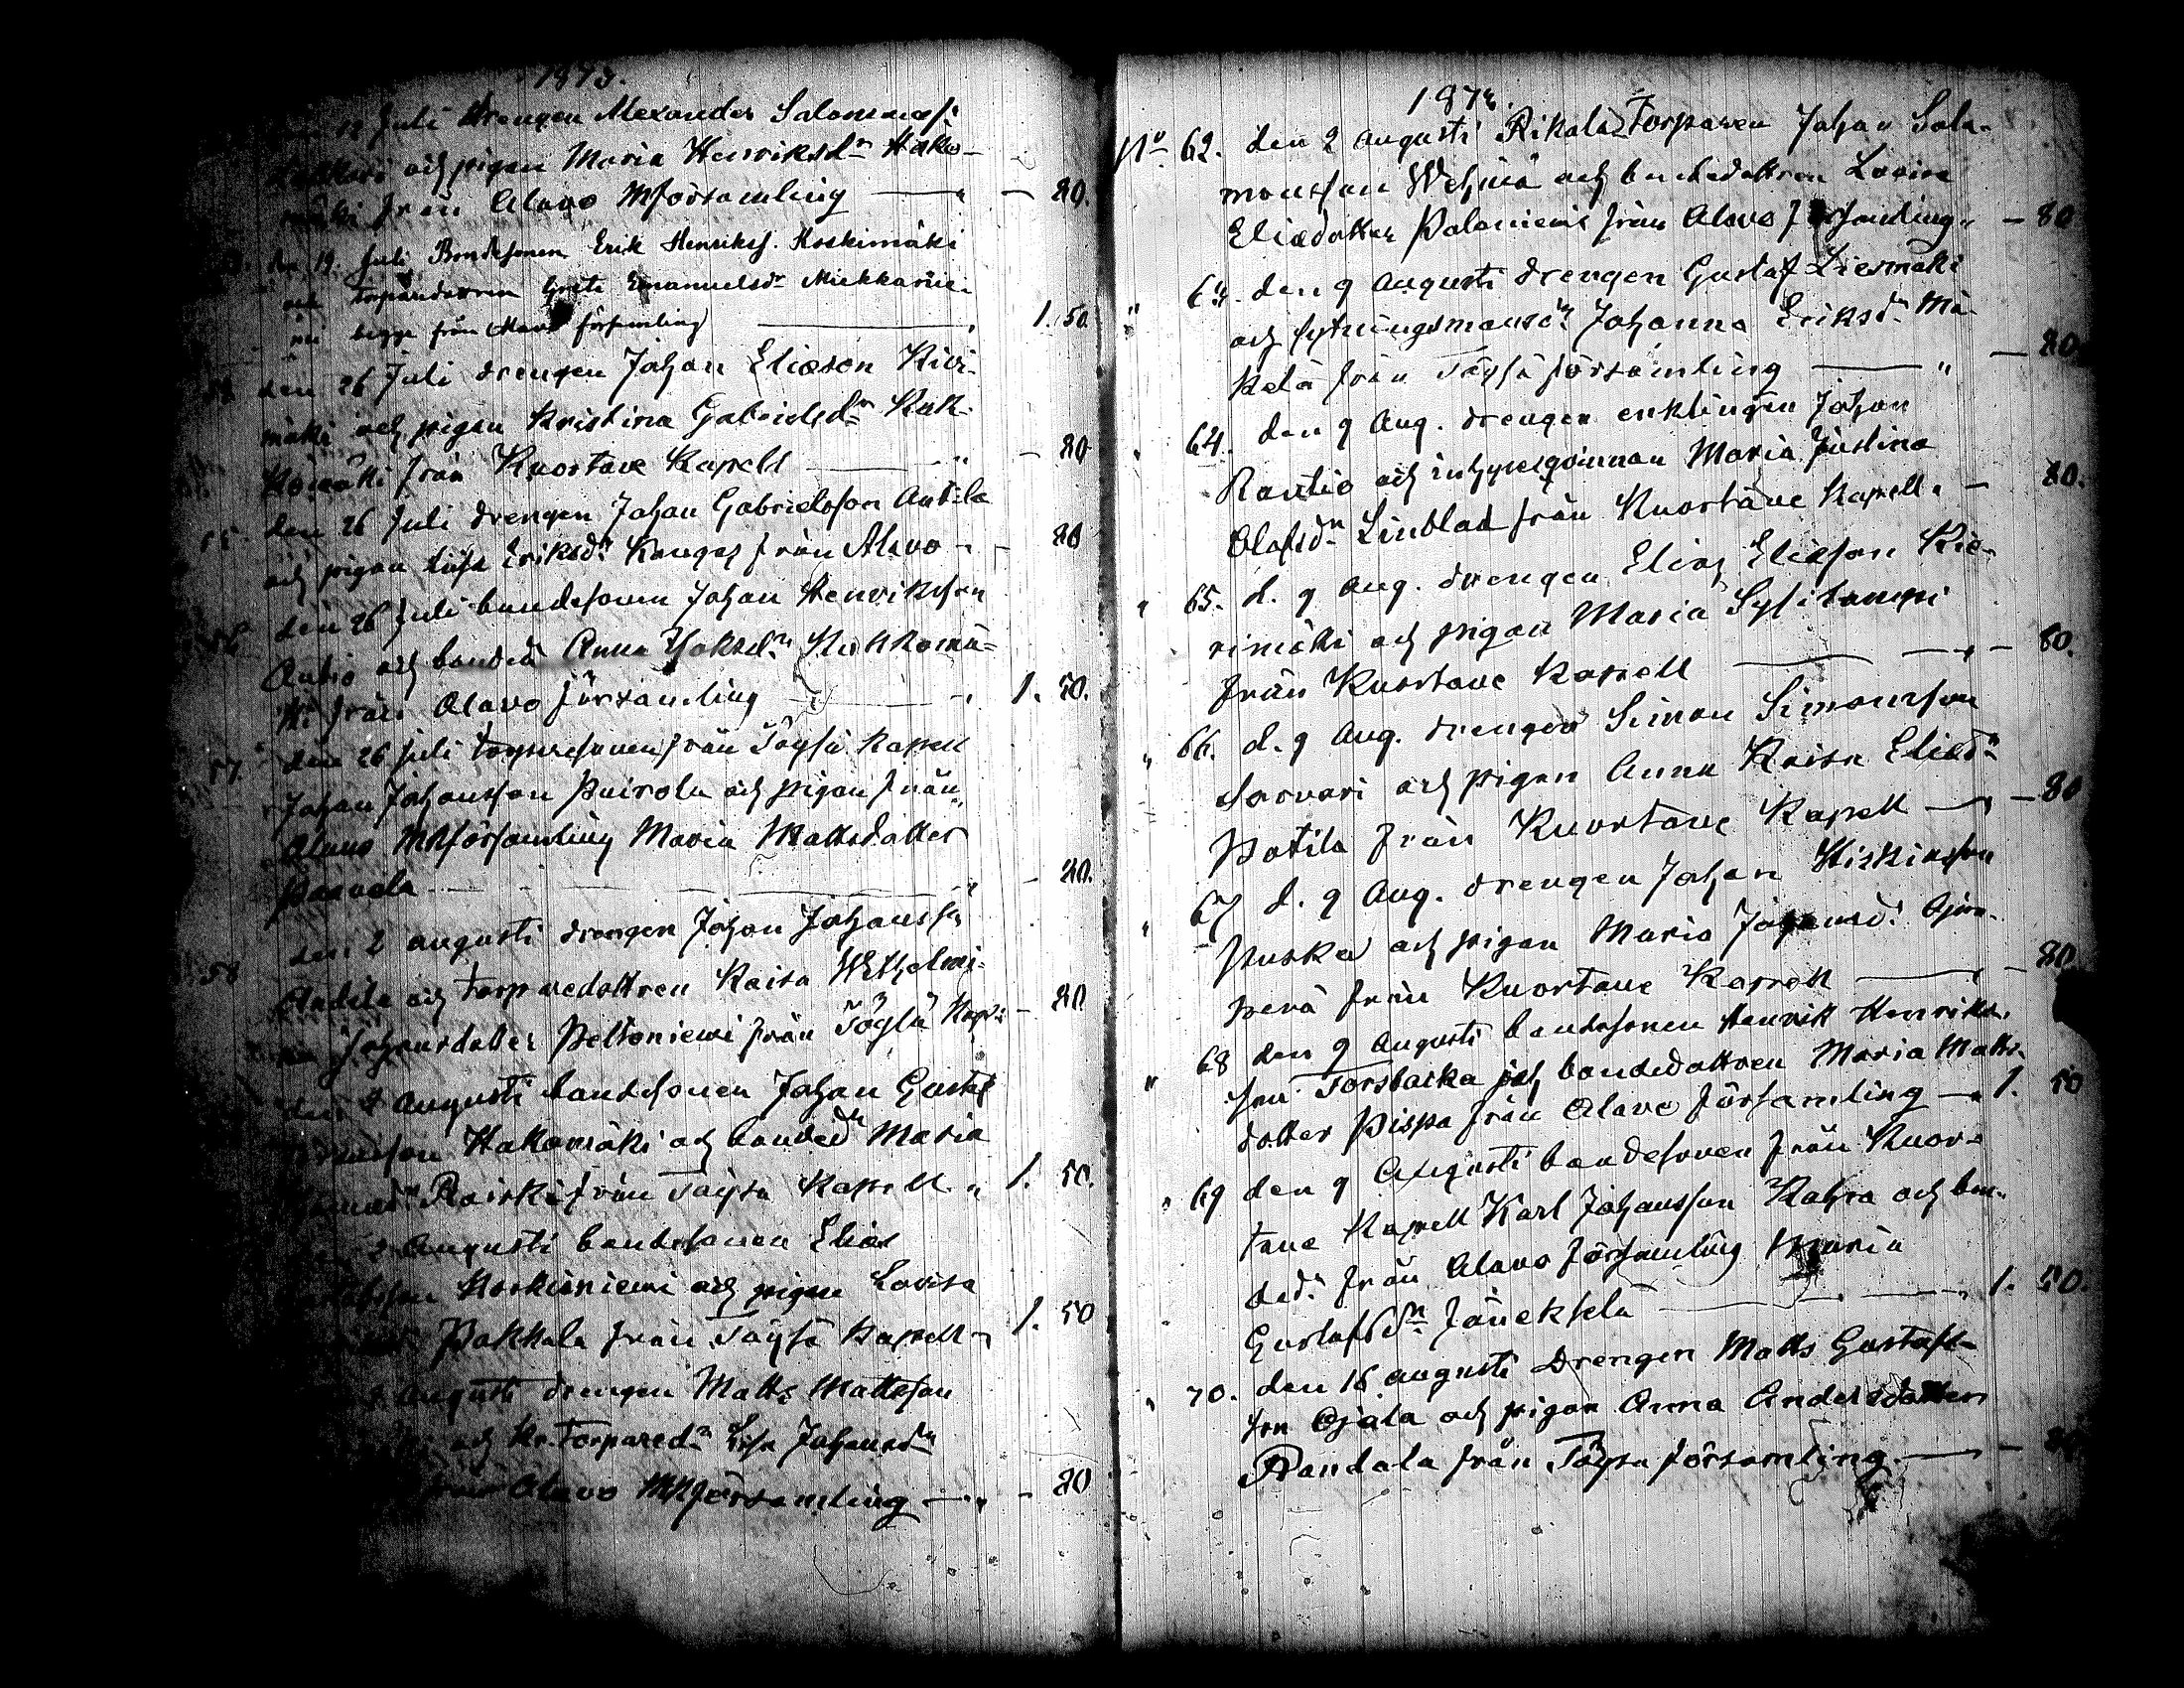 1873.
12 Juli Drengen Alexander Salomonss.
och pigan Maria Henriksdr Hako-
mäki från Alavo Mförsamling — " — 80.
den 19. Juli Bondesonen Erik Henrikss. Koskimäki
och Torparedottren Greta Emanuelsdr
begge från Alavo församling — " 1. 50
den 26 Juli drengen Johan Eliasson Kivi-
mäki och pigan Kristina Gabrielsdr Kuk-
komäki från Kuortane Kapell — " — 80
55. den 26 Juli drengen Johan Gabrielsson Antila
och pigan Lisa Eriksdr Kangas från Alavo " — 80
56. den 26 Juli bondesonen Johan Henriksson
Autio och bonded. Anna
ki från Alavo församling — " 1. 50.
57. den 26 Juli torparesonen från Töysä Kapell
Johan Johansson Pairola och pigan från
Alavo Mförsamling Maria Mattsdotter
Paavola — " — 80.
58 den 2 augusti drengen Johan Johanss.
och torparedottren Kaisa Wilhelmi-
na Johansdotter Peltoniemi från Töysä Kap: — 80
den 2 Augusti bondesonen Johan Gustaf
Hakomäki och bondedr Maria
från Töysä Kapell. " 1. 50.
2 Augusti bondesonen Elias
Koskiniemi och pigan Lovisa
Pakkala från Töysä Kapell " 1. 50
2 Augusti drengen Matts Mattsson
och Kr. Torparedr Lisa Johansdr
från Alavo Mförsamling — " — 80
187
No 62. den 2 Augusti Torparen Johan Salo-
monsson och bondedottren Lovisa
Eliædotter Paloniemi från Alavo församling " — 80
" 63. den 9 Augusti drengen Gustaf Liesmäki
och sytningsmansdr Johanna Eriksdr Mä-
kelä från Töysä församling — " — 80
" 64. den 9 Aug. drengen enklingen Johan
Rantio och inhysesqvinnan Maria Justina
Olofsdr Linblad från Kuortane Kapell " — 80.
" 65. d. 9 Aug. drengen Elias Eliasson Kie-
rimäki och pigan Maria Sysilampi
från Kuortane Kapell — " — 80.
" 66. d. 9 Aug. drengen Simon Simonsson
Sarvari och pigan Anna Kaisa Eliædr
Potila från Kuortane Kapell — " — 80
" 67 d. 9 Aug. drengen Johan Hiskiasson
Puska och pigan Maria Johansdr Ojan-
perä från Kuortane Kapell — " — 80
" 68 den 9 Augusti bondesonen Henrik Henriks-
son Torsbacka och bondedottren Maria Matts-
dotter Pispa från Alavo församling — " 1. 50
" 69 den 9 Augusti bondesonen från Kuor-
tane Kapell Karl Johansson Kahra och bon-
ded. från Alavo församling Maria
Gustafsdr Jänekselä — " 1. 50.
" 70. den 16 augusti Drengen Matts Gustafs-
son Ojala och pigan Anna Andersdotter
Randala från Töysä församling. — — 80